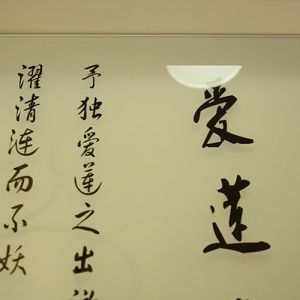 爱莲
予独爱莲之出淤
濯清涟而不妖